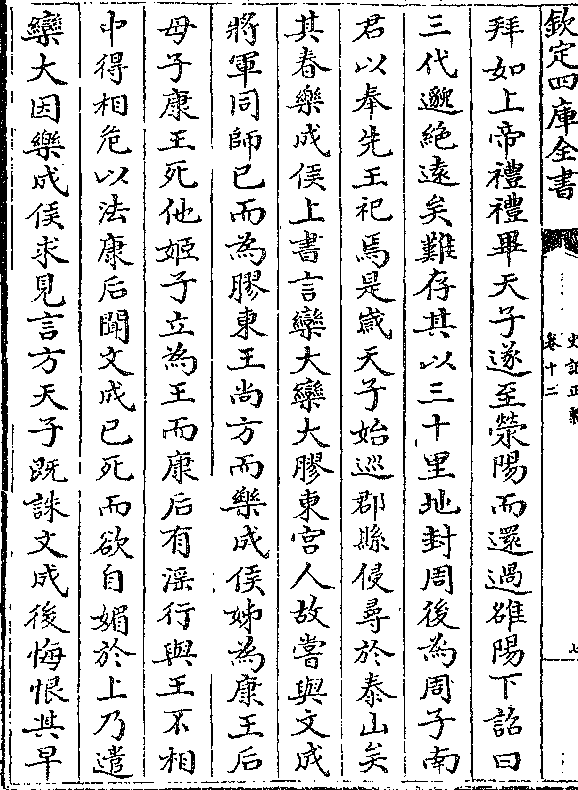 欽定四庫全書
史記正義
卷十二
七
拜如上帝禮禮畢天子遂至滎陽而還過雒陽下詔曰
三代邈絶逺矣難存其以三十里地封周後為周子南
君以奉先王祀焉是嵗天子始巡郡縣侵尋於泰山矣
其春樂成侯上書言欒大欒大膠東宫人故嘗與文成
將軍同師已而為膠東王尚方而樂成侯姊為康王后
毋子康王死他姬子立為王而康后有淫行與王不相
中得相危以法康后聞文成已死而欲自媚於上乃遣
欒大因樂成侯求見言方天子既誅文成後悔恨其早